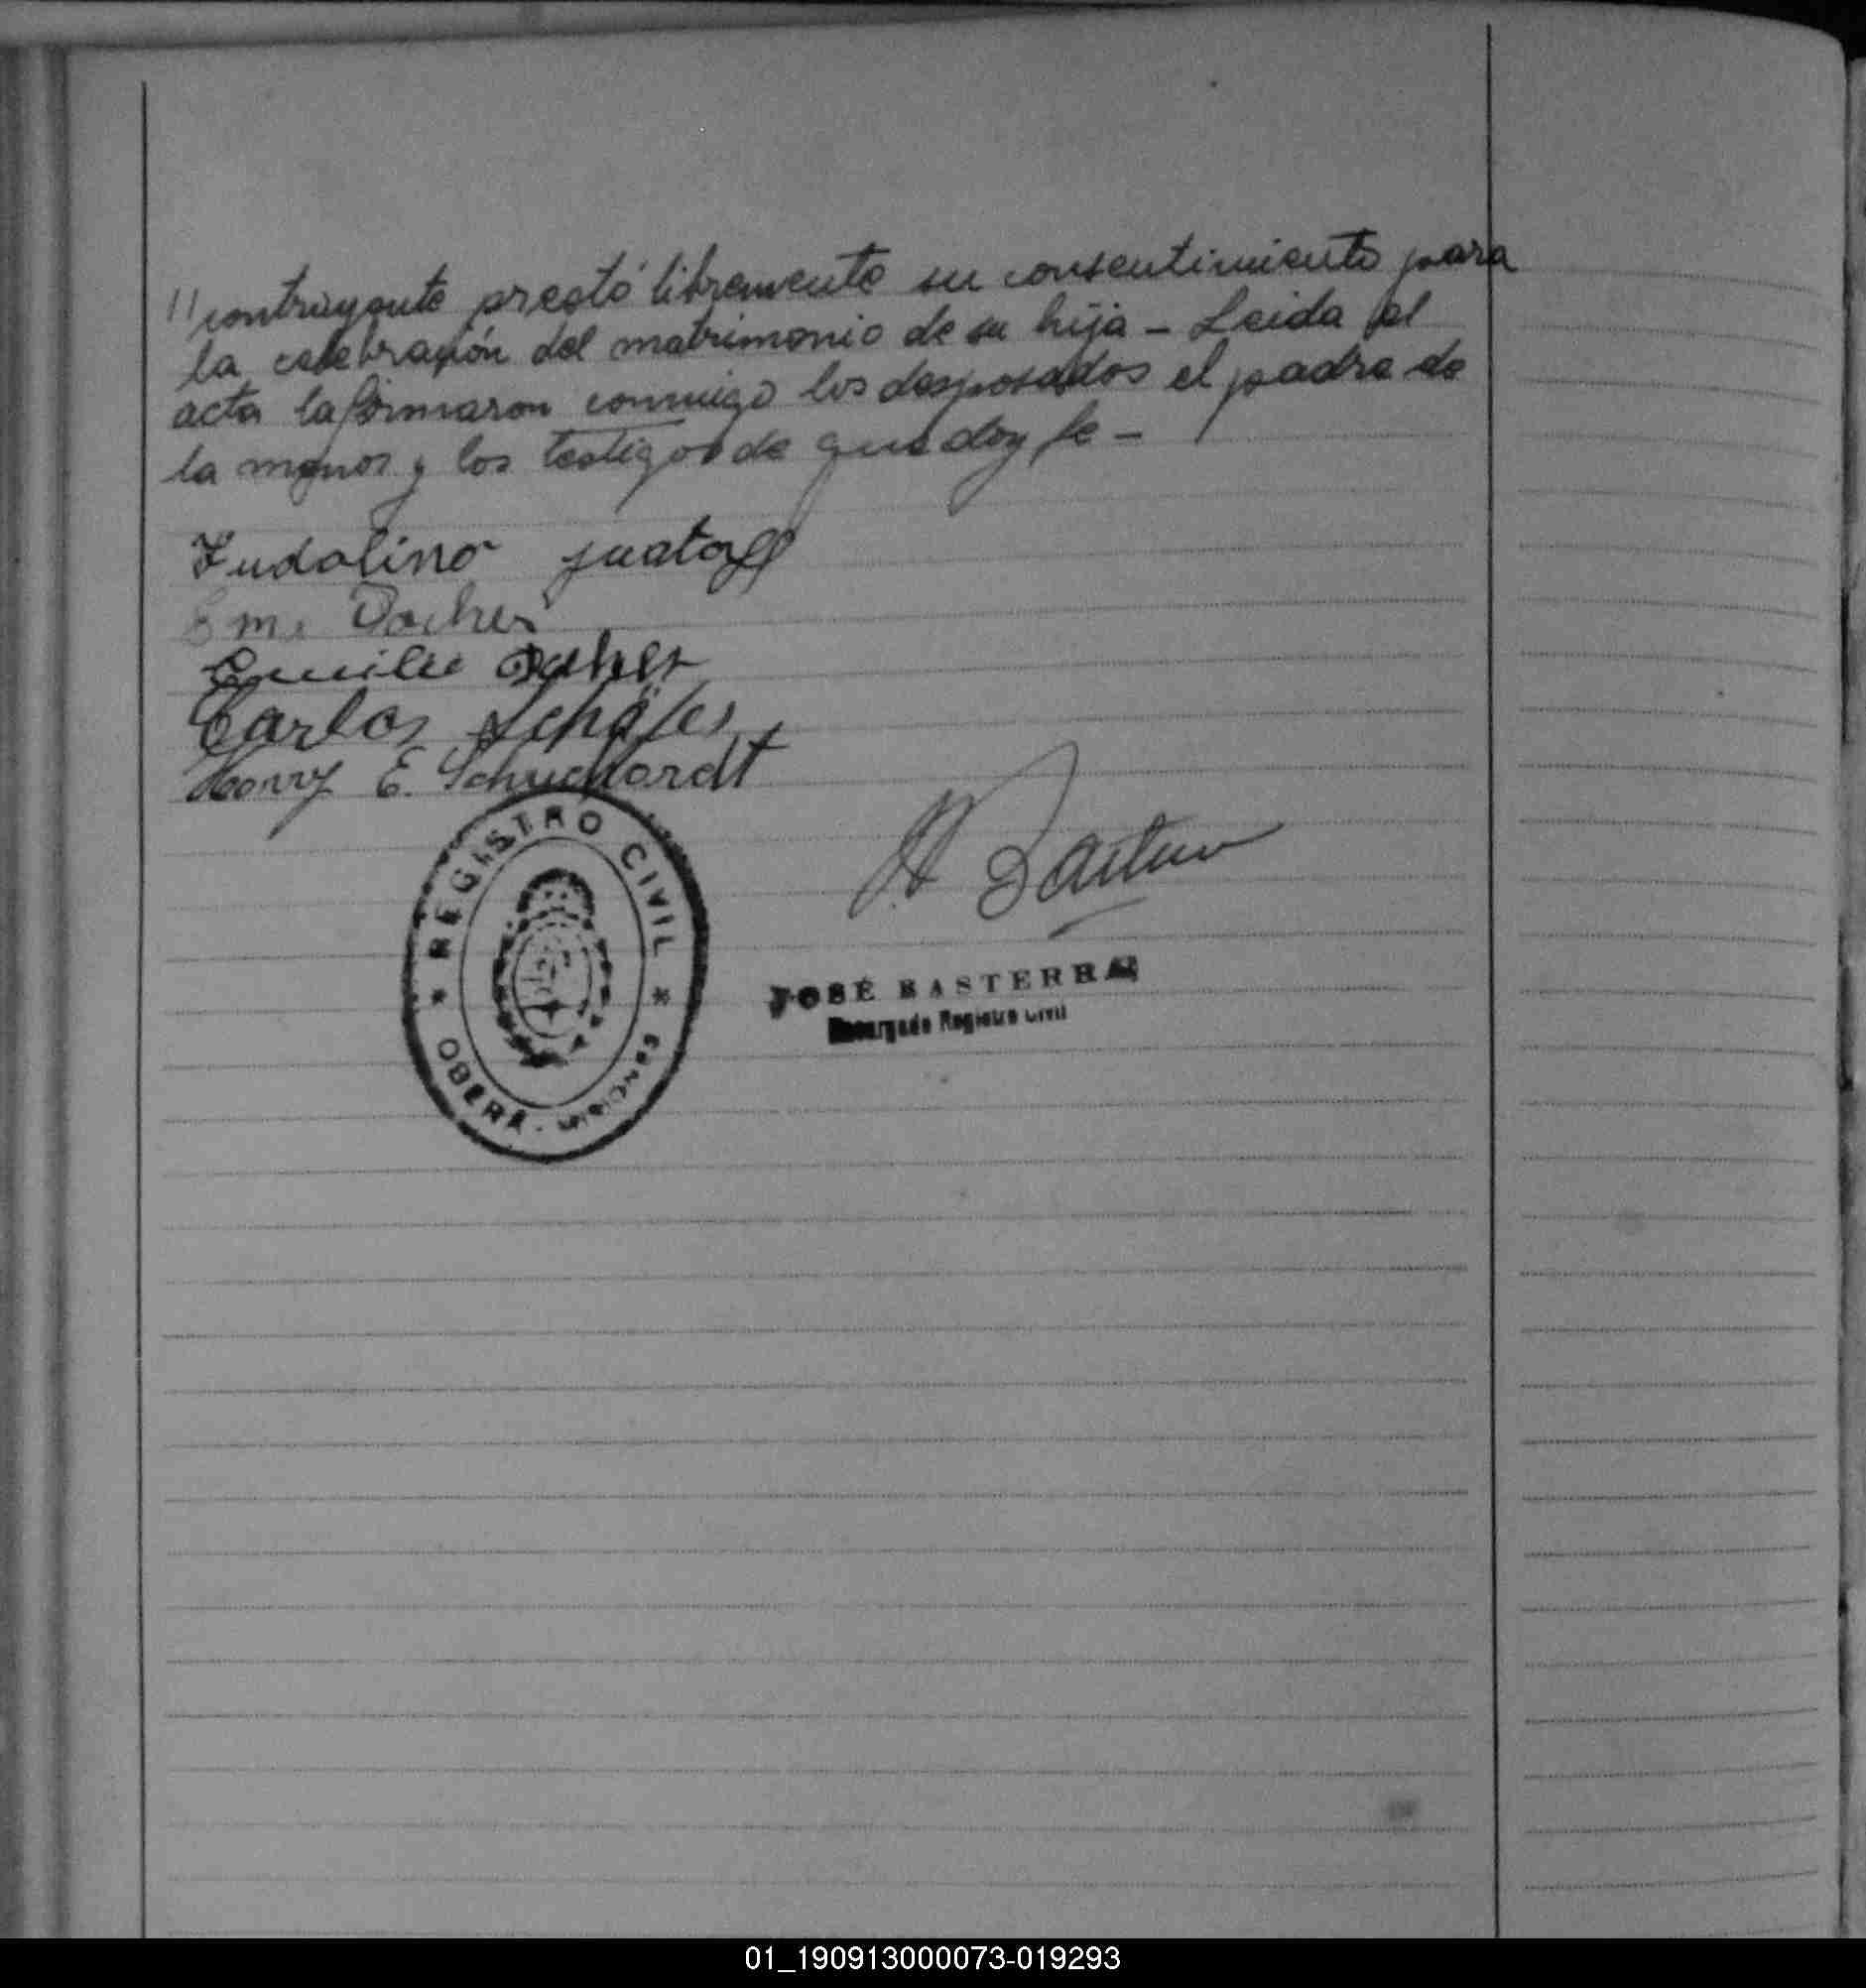 "contrayente prestó libremente su consentimiento para
la celebración del matrimonio de su hija - Leida el
acta la firmaron conmigo los desposados el padre de
la menor y los testigos de que doy fe -
Carlos Schäfer
Harry E. Schuchardt
REGISTRO CIVIL
OBERÁ - MISIONES
JOSÉ BASTERRA
Encargado Registro Civil
01_190913000073-019293